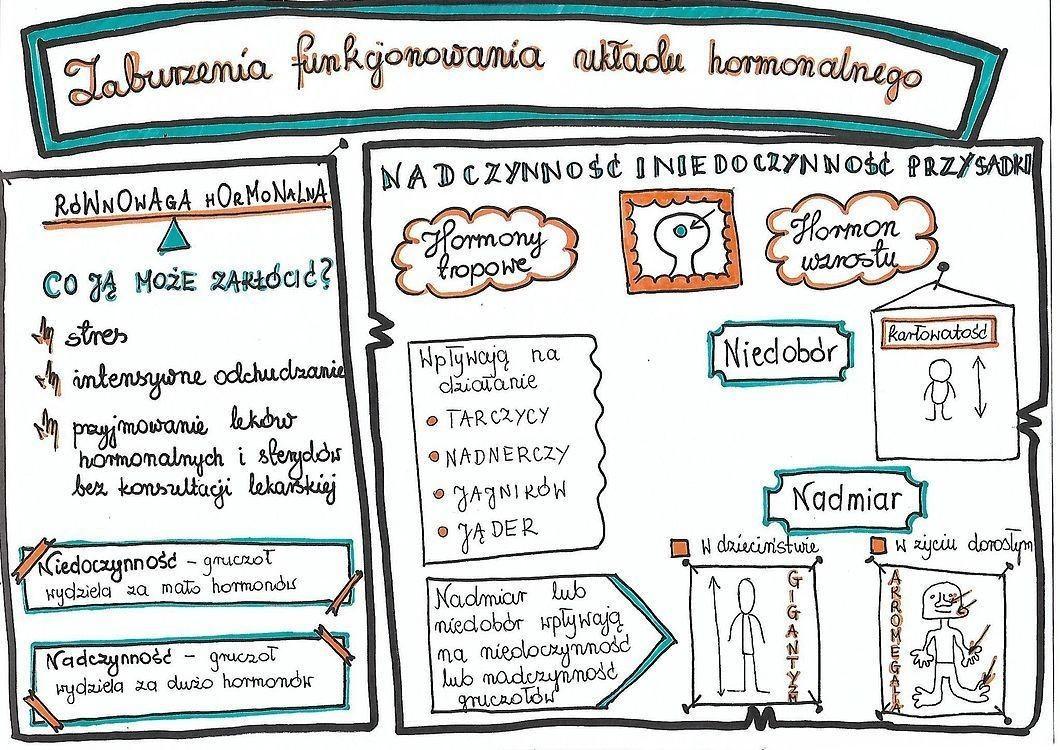 Zaburzenia funkcjonowania układu hormonalnego
RÓWNOWAGA HORMONALNA
CO JĄ MOŻE ZAKŁÓCIĆ?
stres
intensywne odchudzanie
przyjmowanie leków
hormonalnych i sterydów
bez konsultacji lekarskiej
Niedoczynność – gruczoł
wydziela za mało hormonów
Nadczynność – gruczoł
wydziela za dużo hormonów
NADCZYNNOŚĆ I NIEDOCZYNNOŚĆ PRZYSADKI
Hormony
tropowe
Hormon
wzrostu
Wpływają na
działanie
TARCZYCY
NADNERCZY
JAJNIKÓW
JĄDER
Nadmiar lub
niedobór wpływają
na niedoczynność
lub nadczynność
gruczołów
Niedobór
karłowatość
Nadmiar
w dzieciństwie
GIGANTYZM
w życiu dorosłym
ARROMEGALIA